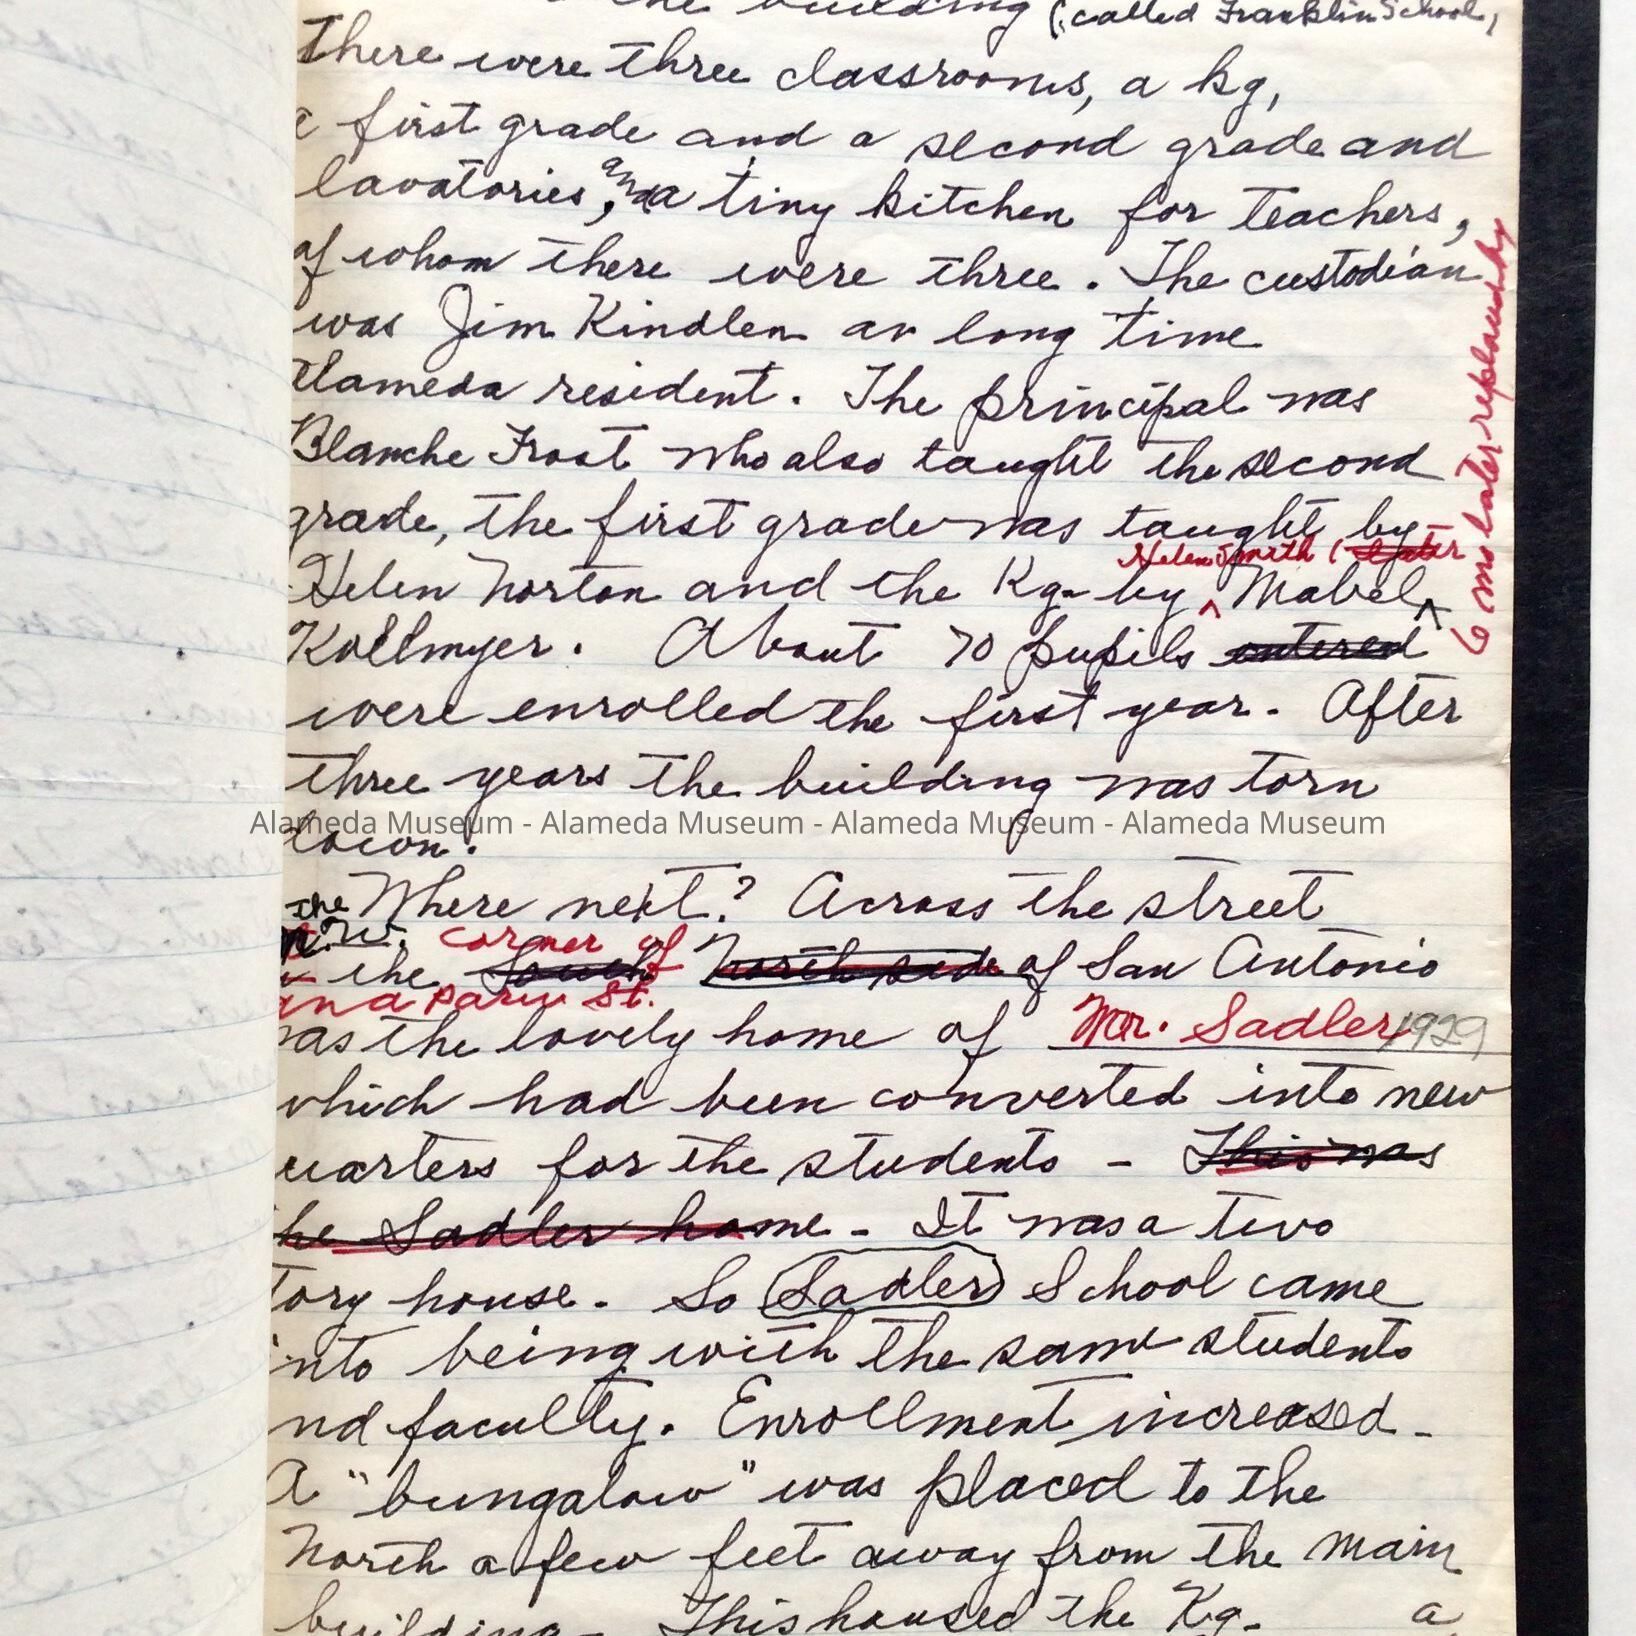 the building (called Franklin School,
there were three classrooms, a kg,
a first grade and a second grade and
lavatories, and a tiny kitchen for teachers,
of whom there were three. The custodian
was Jim Kindlen a long time
Alameda resident. The principal was
Blanche Frost who also taught the second
grade, the first grade was taught by
Helen Smith (later
6 mos later replaced by
Helen Norton and the Kg. by ^ Mabel ^
Kollmyer. About 70 pupils entered
were enrolled the first year. After
three years the building was torn
down.
Alameda Museum - Alameda Museum - Alameda Museum - Alameda Museum
Where next? Across the street
the
N.W. corner of
the South North side of San Antonio
and Paru St.
was the lovely home of Mr. Sadler 1929
which had been converted into new
quarters for the students - This was
the Sadler home - It was a two
tory house. So Sadler School came
into being with the same students
nd faculty. Enrollment increased -
A "bungalow" was placed to the
North a few feet away from the main
building - This housed the Kg. a